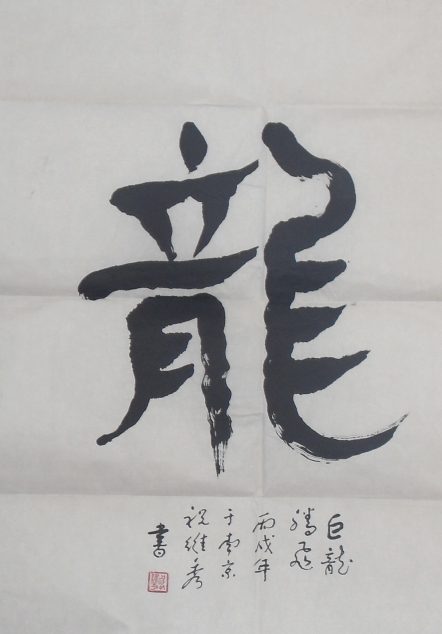 龍
巨龍
騰飛
丙戌年
于南京
祝维秀
書